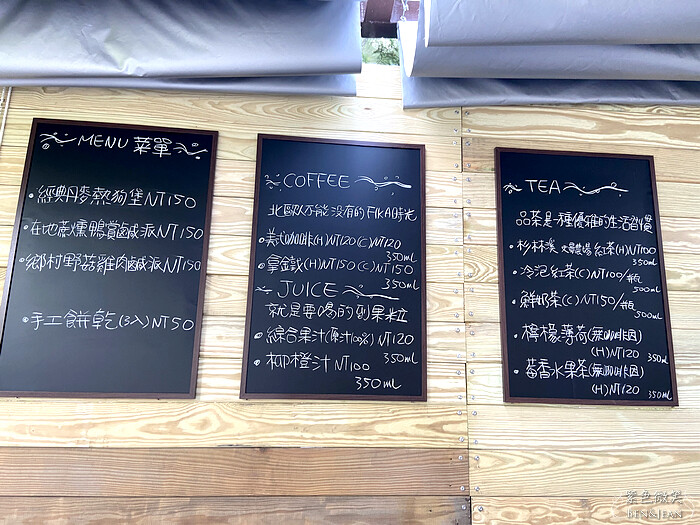 MENU 菜單
·經典丹麥熱狗堡NT150
·在地蔗燻鴨賞鹹派NT150
·鄉村野菇雞肉鹹派NT150
·手工餅乾(3入)NT50
COFFEE
北歐人不能沒有的FIKA時光
·美式咖啡(H)NT120(C)NT120
350ml
·拿鐵(H)NT150(C)NT150
350ml
JUICE
就是要喝的到果粒
·綜合果汁(原汁100%)NT120
350ml
·柳橙汁NT100
350ml
TEA
品茶是一種優雅的生活習慣
·杉林溪 紅茶(H)NT100
350ml
·冷泡紅茶(C)NT100/瓶
500ml
·鮮奶茶(C)NT150/瓶
500ml
·檸檬薄荷(無咖啡因)
(H)NT120 350ml
·莓香水果茶(無咖啡因)
(H)NT120 350ml
紫色微笑
BEN&JEAN